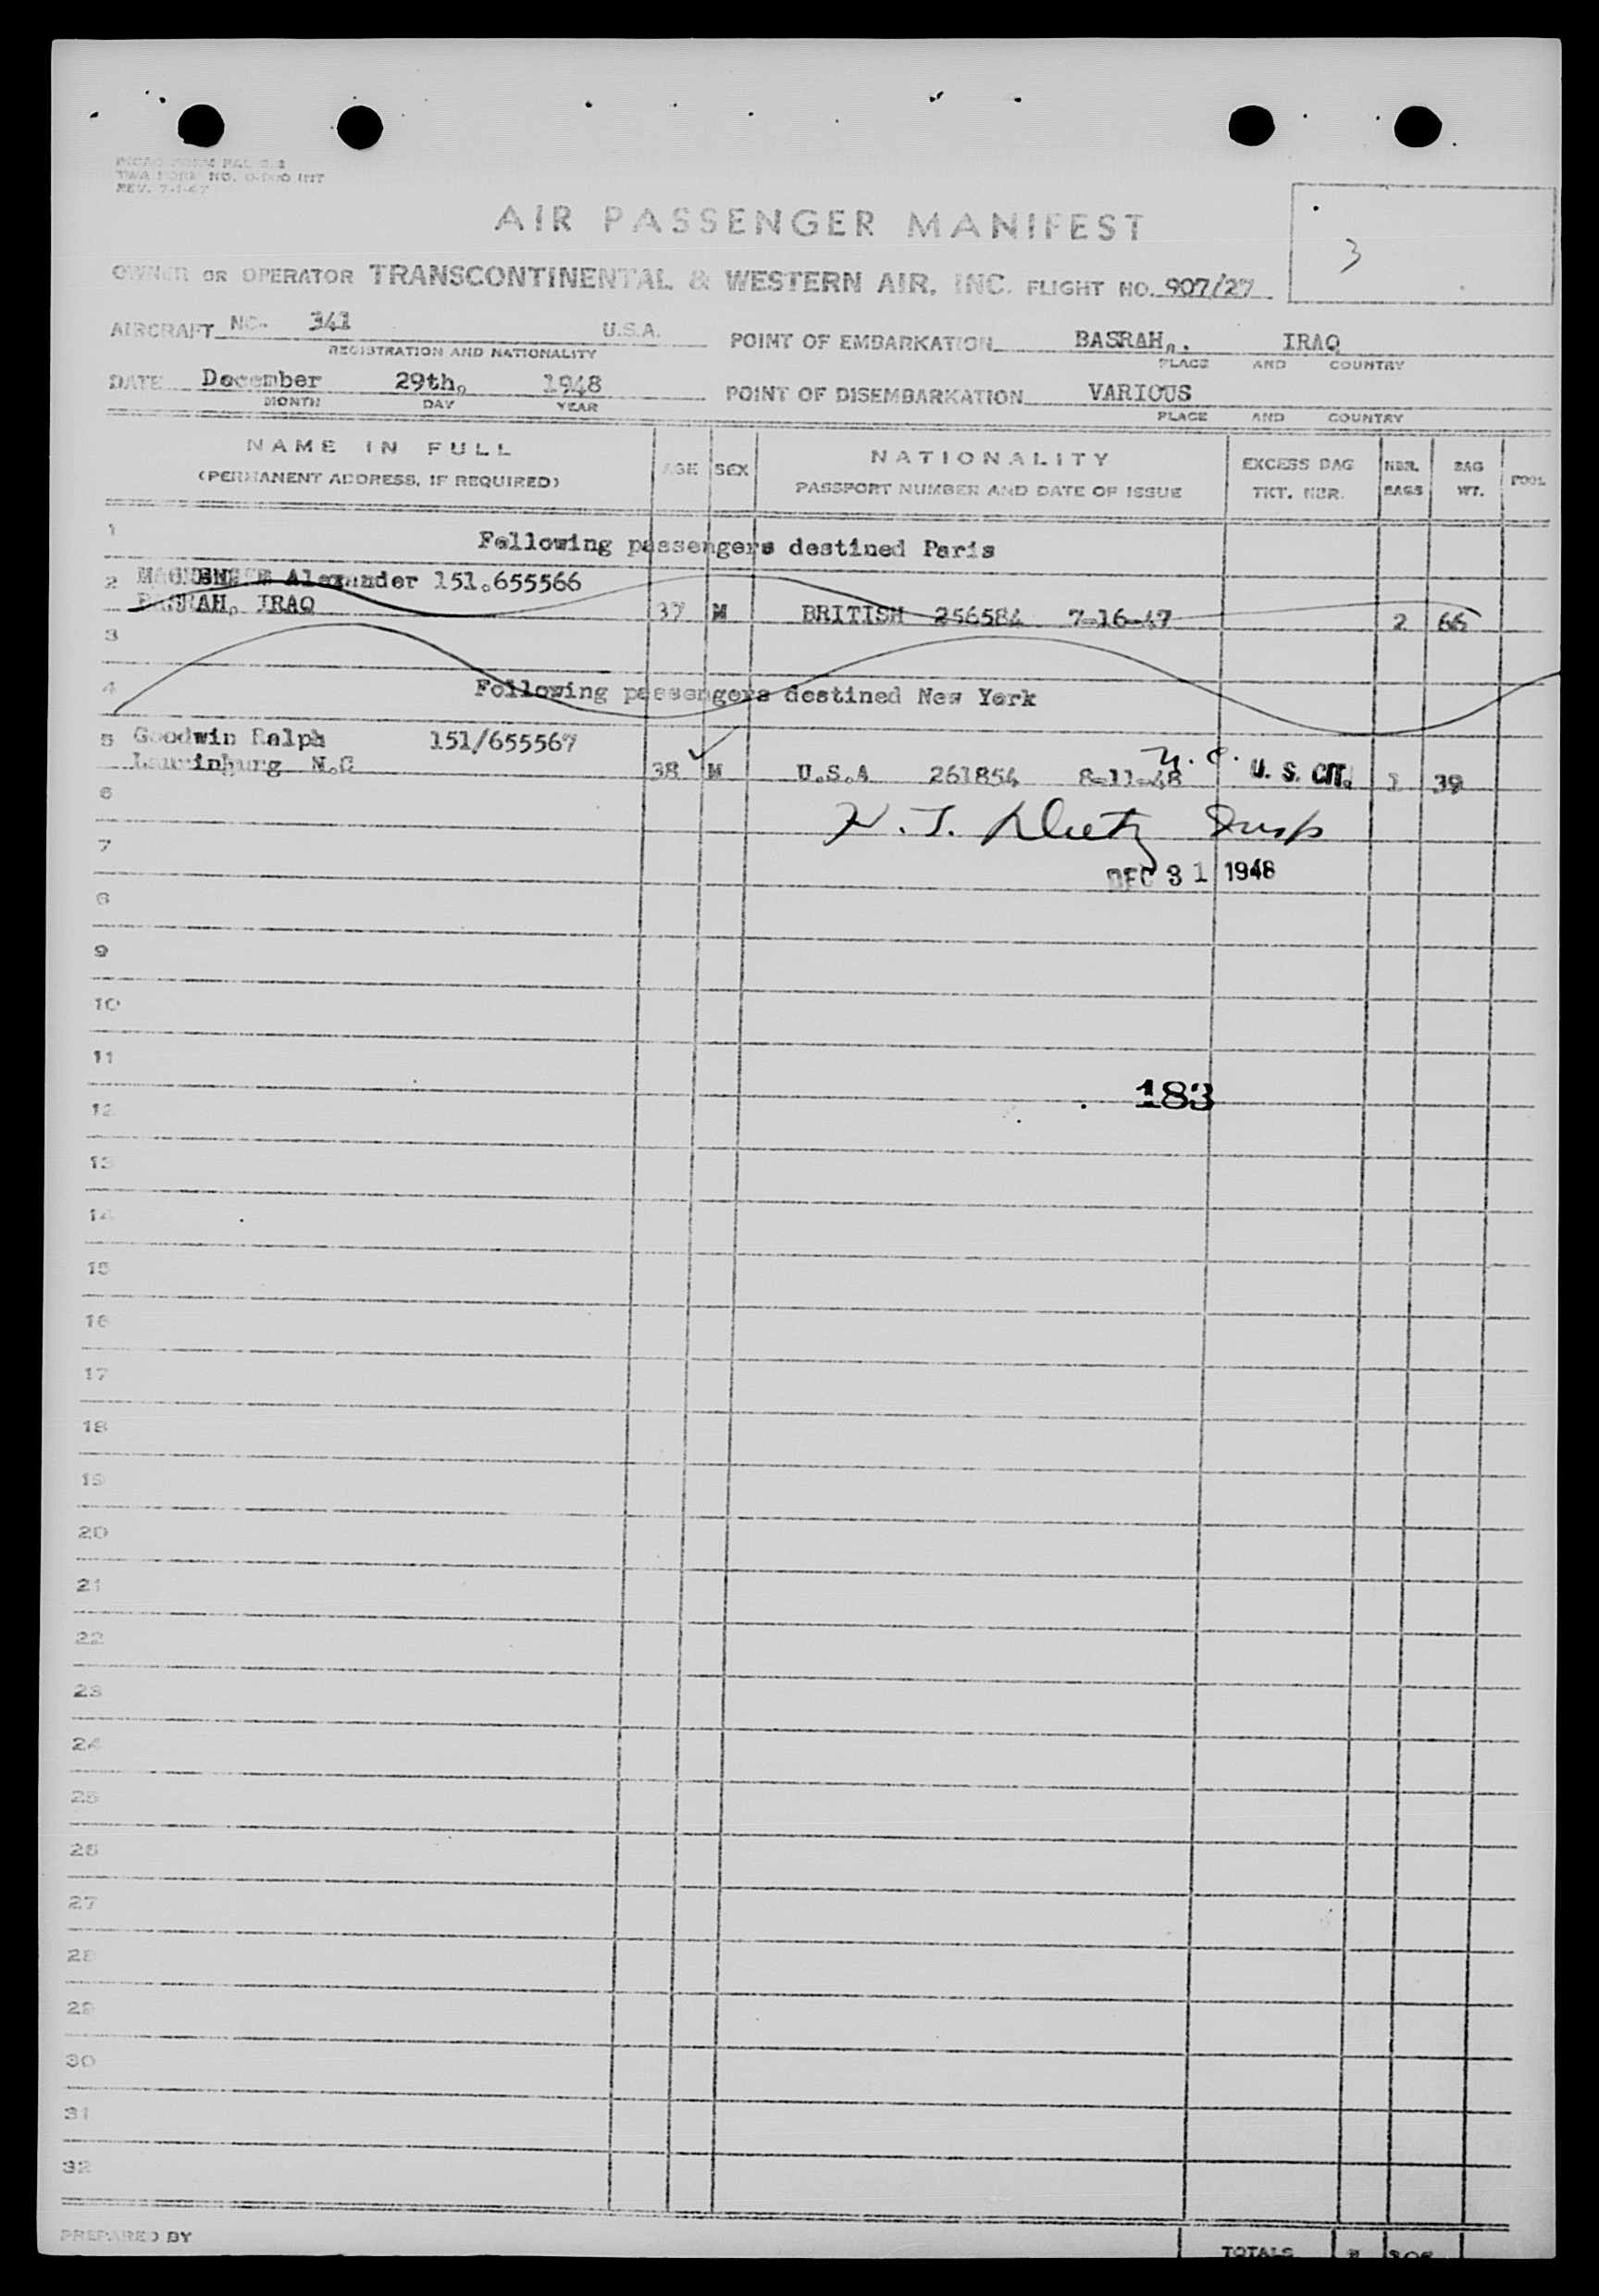 REV. 7-1-47
3
AIR PASSENGER MANIFEST
OWNER OR OPERATOR TRANSCONTINENTAL & WESTERN AIR, INC. FLIGHT NO. 907/27
AIRCRAFT NC- 341 U.S.A. POINT OF EMBARKATION BASRAH,. IRAQ
REGISTRATION AND NATIONALITY PLACE AND COUNTRY
DATE December 29th, 1948 POINT OF DISEMBARKATION VARIOUS
MONTH DAY YEAR PLACE AND COUNTRY
NAME IN FULL AGE SEX NATIONALITY EXCESS BAG NBR. BAG POOL
(PERMANENT ADDRESS, IF REQUIRED) PASSPORT NUMBER AND DATE OF ISSUE TKT. NBR. BAGS WT.
1 Following passengers destined Paris
2 Alexander 151.655566
BASRAH, IRAQ 37 M BRITISH 256584 7-16-47 2 66
3
4 Following passengers destined New York
5 Goodwin Ralph 151/655567
Laurinburg N.C 38 M U.S.A 261854 8-11-48 n.c. U. S. CIT. 1 39
6
H. J. Insp
7
DEC 31 1948
8
9
10
11
183
12
13
14
15
16
17
18
19
20
21
22
23
24
25
26
27
28
29
30
31
32
PREPARED BY
TOTALS